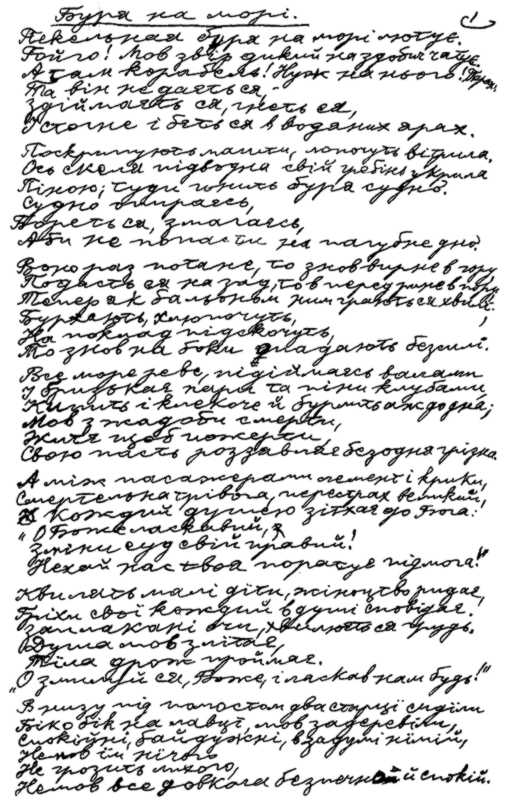 Буря на морі.
1
Пекельная буря на морі лютує.
Гойго! Мов звір дикий на здобич чатує.
А там корабель! Нуж на нього!
Та він не даєть ся, -
Здіймаєть ся, гнеть ся,
І стогне і бєть ся в водяних ярах.
Поскрипують машти, лопочуть вітрила.
Ось скеля підводна свій гребінь укрила
Піною; туди гонить буря судно.
Судно опираєсь,
Бореть ся, змагаєсь,
Аби не попасти на пагубне дно.
Воно раз потане, то знов вирне в гору,
Подасть ся на зад, то в перед рине в пору
Тепер як бальоном ним грають ся хвилі;
Бурхають, хлюпочуть,
На поклад підскочуть,
То знов на боки спадають безсилі.
Все море реве, підіймаєсь валами
І бризькає пара та піни клубами,
Кипить і клекоче й бурлить аж до дна;
Мов з жадоби смерти,
Житя щоб пожерти,
Свою пасть роззавляє безодня грізна.
А між пасажерами лемент і крики,
Смертельна трівога, перестрах великий!
Кождий душею зітхає до Бога:
"О Боже ласкавий,
Зміни суд свій правий!
Нехай нас твоя поратує підмога!"
Квилять малі діти, жіноцтво ридає,
Гріхи свої кождий в душі сповідає.
Заплакані очи, хвилюєть ся грудь.
Душа мов злітає,
Тіла дрож проймає.
"О змилуй ся, Боже, і ласкав нам будь!"
В низу під помостом два старці сиділи
Бік о бік на лавці, мов задеревіли,
Спокійні, байдужні, в задумі німій,
Немов їм нічого
Не грозить лихого,
Немов все довкола безпечний й спокій.